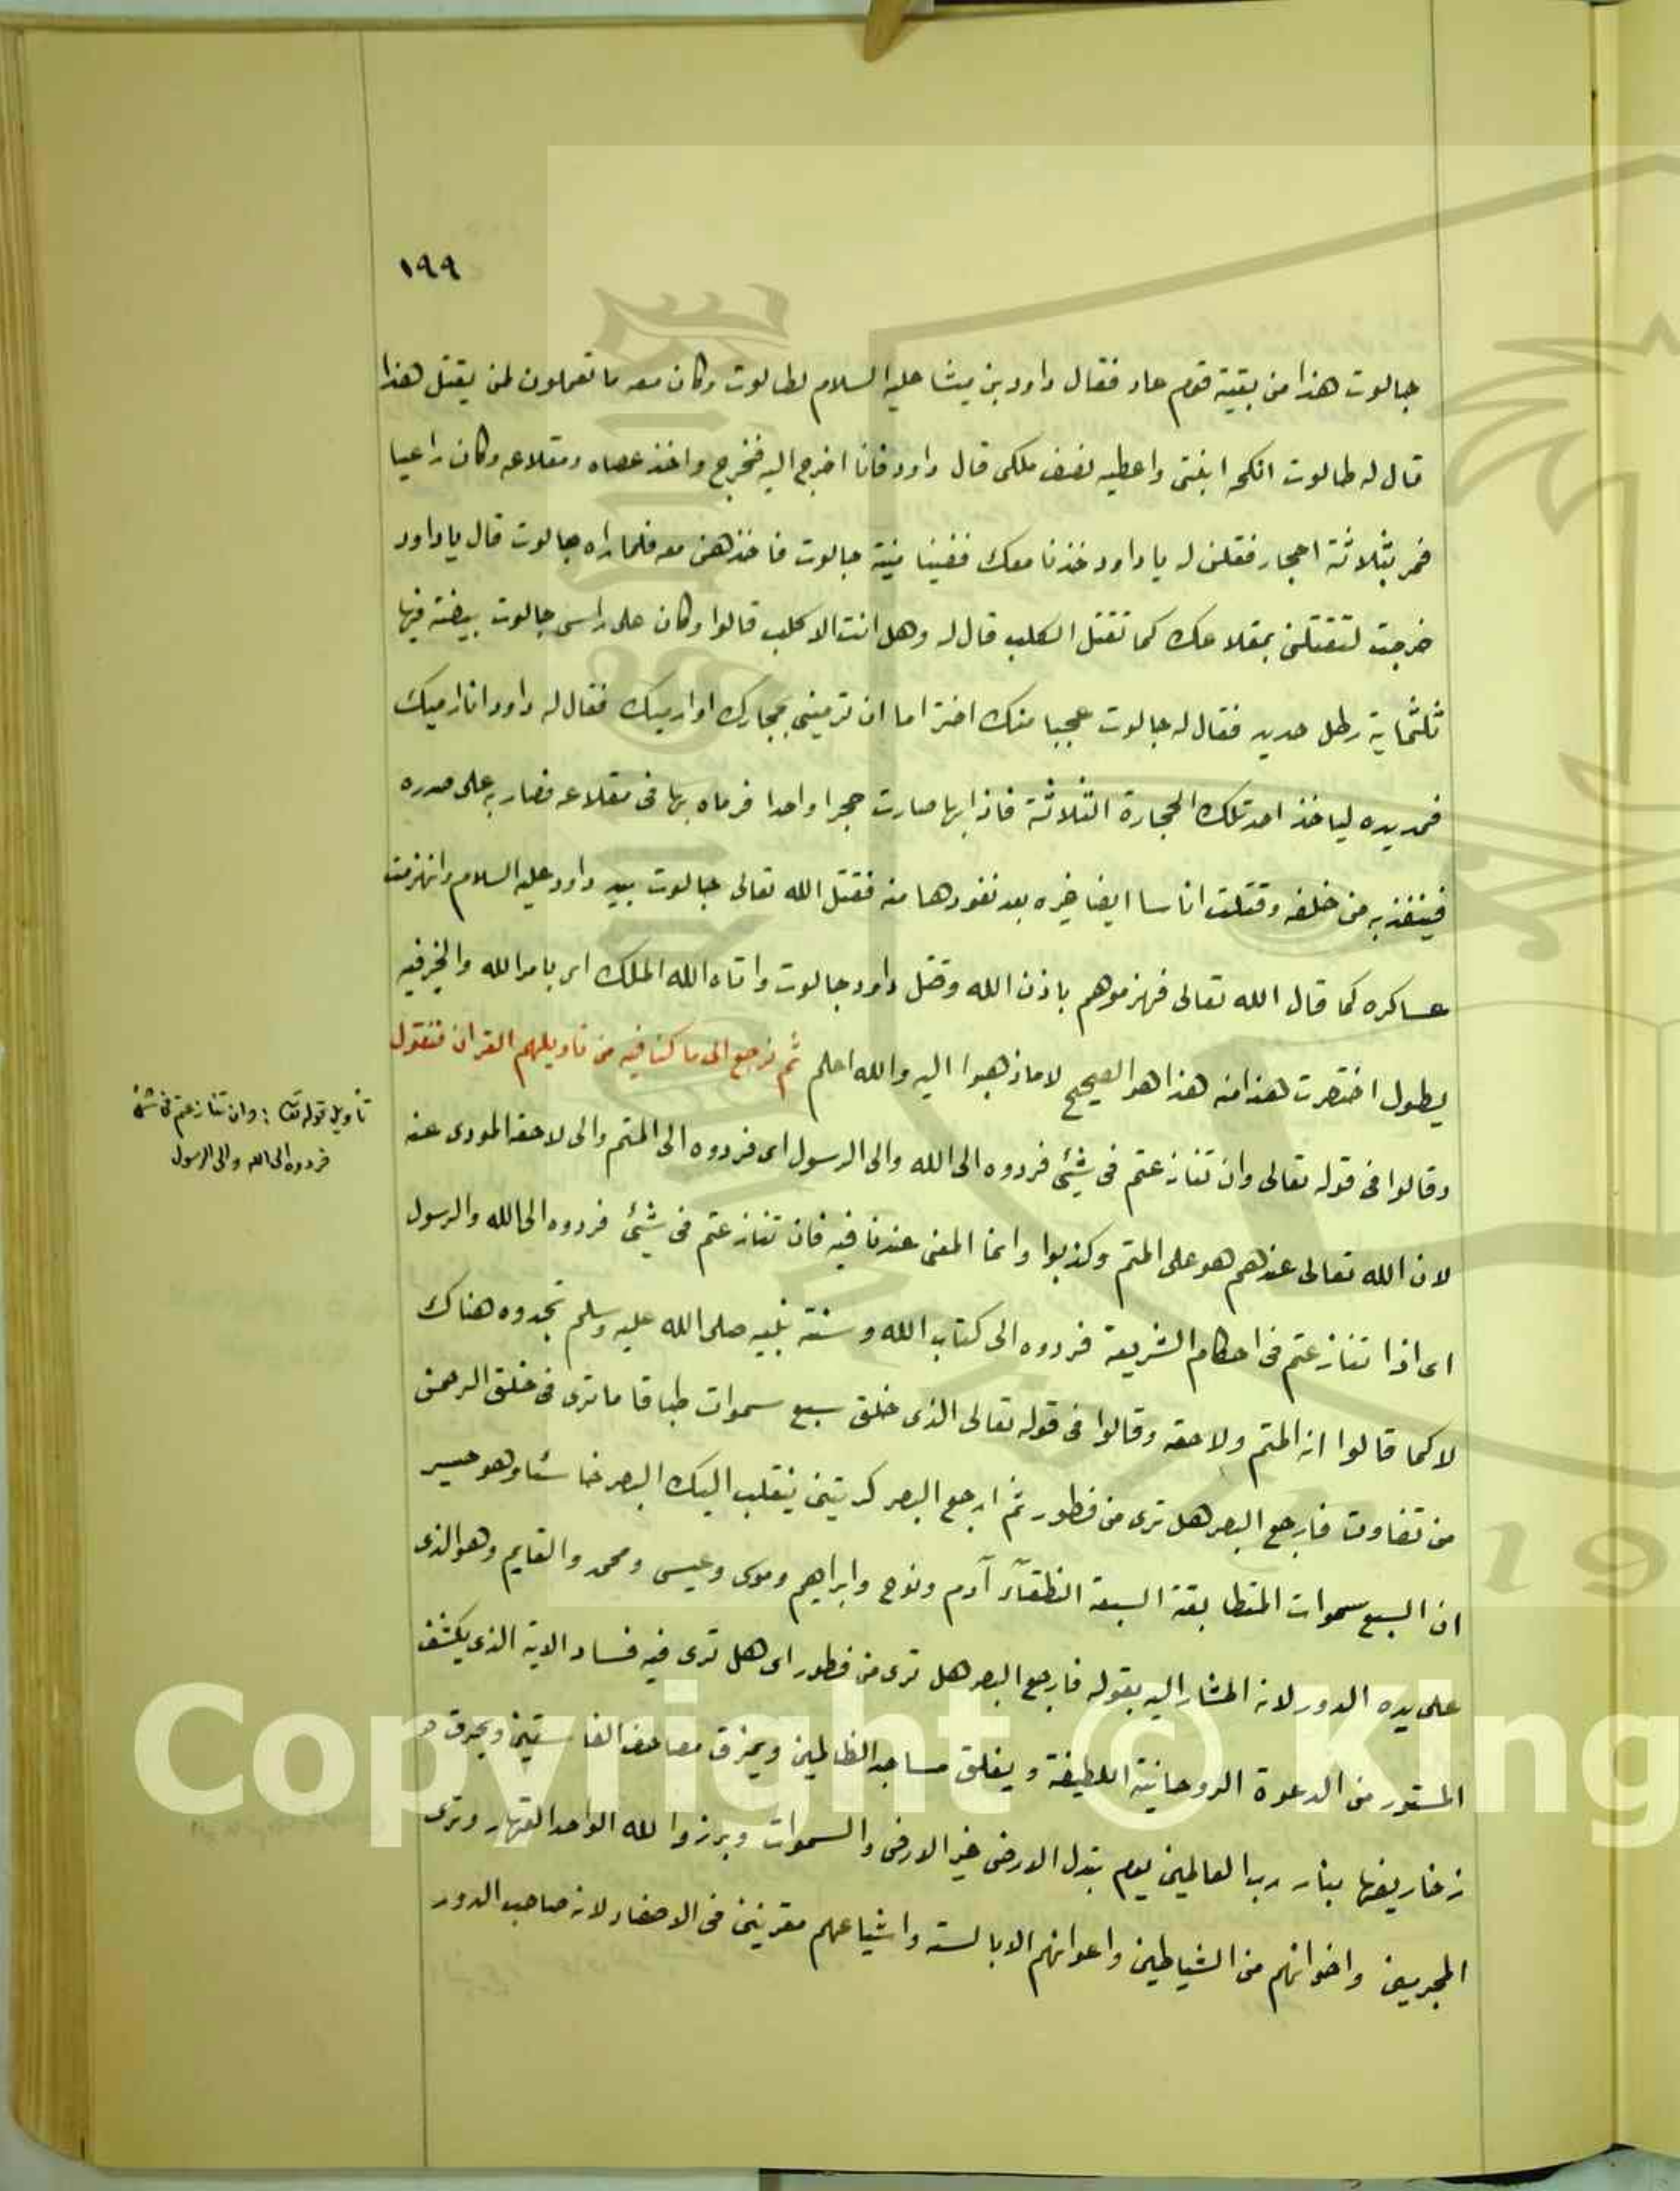 ١٩٩
جالوت هذا من بقية قوم عاد فقال داود بن ميشا عليه السلام لطالوت وكان معه ما تعملون لمن يقتل هذا
قال له طالوت انكحه ابنتى واعطيه نصف ملكى قال داود فانا اخرج اليه فخرج واخذ عصاه ومقلاعه وكان راعيا
فمر بثلاثة احجار فقلن له يا داود خذنا معك ففينا منية جالوت فاخذهن معه فلما راه جالوت قال يا داود
خرجت لتقتلنى بمقلاعك كما تقتل الكلب قال له وهل انت الا كلب قالوا وكان على راس جالوت بيضة فيها
ثلثماية رطل حديد فقال له جالوت عجبا منك اختر اما ان ترمينى بحجارك او ارميك فقال له داود انا ارميك
فمد يده لياخذ احد تلك الحجارة الثلاثة فاذا بها صارت حجرا واحدا فرماه بها فى مقلاعه فضار به على صدره
فينفذ به من خلفه وقتلت اناسا ايضا غيره بعد نفودها منه فقتل الله تعالى جالوت بيد داود عليه السلام وانهزمت
عساكره كما قال الله تعالى فهزموهم باذن الله وقتل داود جالوت واتاه الله الملك اى بامر الله والخبر فيه
يطول اختصرت هذا منه هذا هو الصحيح لا ما ذهبوا اليه والله اعلم ثم نرجع الى ما كنا فيه من تاويلهم القران فنقول
وقالوا فى قوله تعالى وان تنازعتم فى شيئ فردوه الى الله والى الرسول اى فردوه الى المتم والى لاحقه المودى عنه
لان الله تعالى عندهم هو على المتم وكذبوا وانما المعنى عندنا فيه فان تنازعتم فى شيئ فردوه الى الله والرسول
اى اذا تنازعتم فى احكام الشريعة فردوه الى كتاب الله وسنة نبيه صلى الله عليه وسلم تجدوه هناك
لا كما قالوا انه المتم ولاحقه وقالوا فى قوله تعالى الذى خلق سبع سموات طباقا ما ترى فى خلق الرحمن
من تفاوت فارجع البصر هل ترى من فطور ثم ارجع البصر كرتين ينقلب اليك البصر خاسئا وهو حسير
ان السبع سموات المتطابقة السبعة النطقآء آدم ونوح وابراهيم وموسى وعيسى ومحمد والقايم وهو الذى
على يده الدور لانه المشار اليه بقوله فارجع البصر هل ترى من فطور اى هل ترى فيه فساد الاية الذى يكشف
المستور من الدعوة الروحانية اللطيفة ويغلق مساجد الظالمين ويحرق مصاحف الفاسقين ويحرق
زخاريفها بنار رب العالمين يوم تبدل الارض غير الارض والسموات وبرزوا لله الواحد القهار وترى
المجرمين واخوانهم من الشياطين واعوانهم الابالسة واشياعهم مقرنين فى الاصفاد لانه صاحب الدور
تأويل قوله تعا : وان تنازعتم فى شئ
فردوه الى الله والى الرسول
Copyright © King